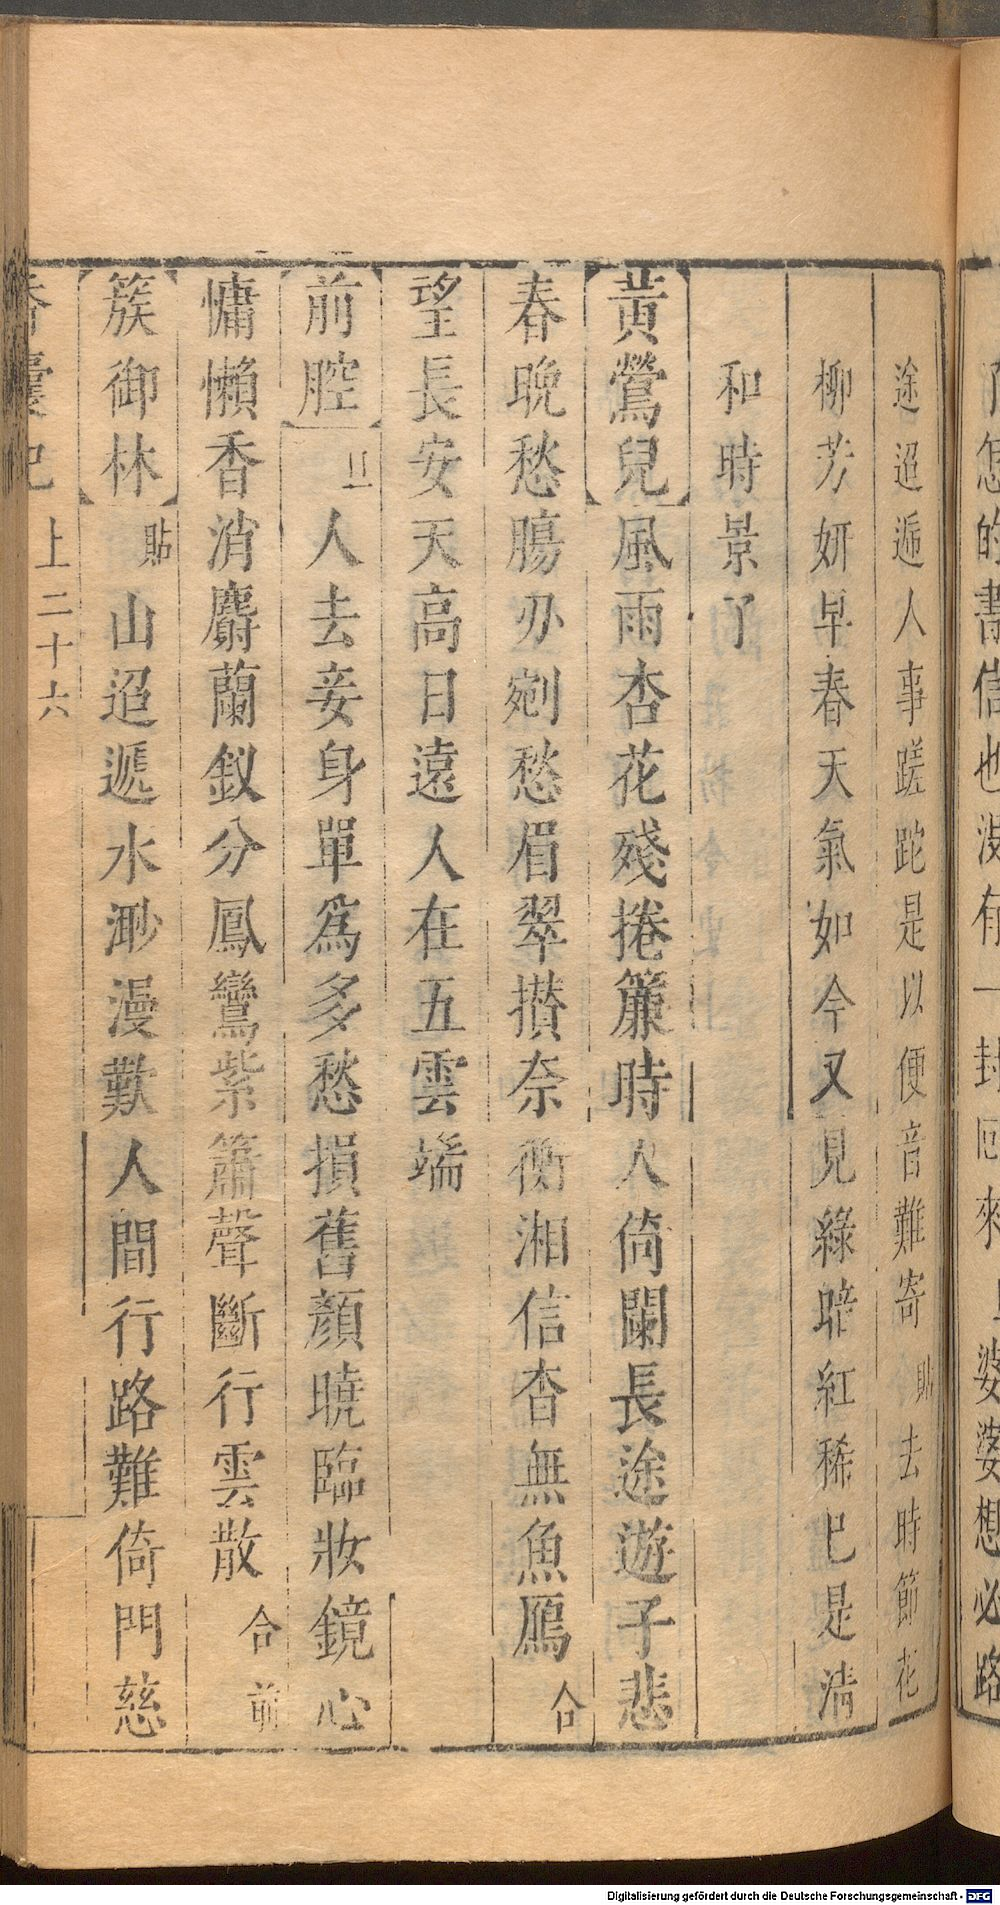 了怎的書信也没有一封回來
婆婆想必路
途迢遞人事蹉跎是以便音難寄 貼 去時節花
柳芳妍早春天氣如今又見綠暗紅稀已是清
和時景了
黃鶯兒 風雨杏花殘捲簾時人倚闌長途遊子悲
春晚愁腸刅剜愁眉翠攅奈衡湘信杳無魚鴈 合
望長安天高日遠人在五雲端
前腔 旦 人去妾身單為多愁損舊顔曉臨妝鏡心
慵懶香消麝蘭釵分鳳鸞紫簫聲斷行雲散 合前
簇御林 貼 山迢遞水渺漫歎人間行路難倚門慈
香囊記 上 二十六
Digitalisierung gefördert durch die Deutsche Forschungsgemeinschaft - DFG